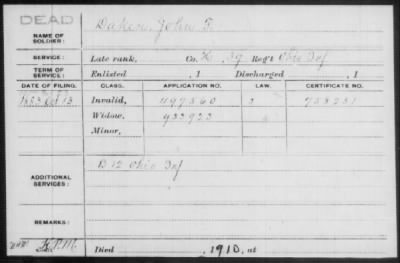 DEAD
NAME OF SOLDIER: Daken, John T.
SERVICE: Late rank, Co. K, 59 Reg't Ohio Inf
TERM OF SERVICE: Enlisted , 1 Discharged , 1
DATE OF FILING. CLASS. APPLICATION NO. LAW. CERTIFICATE NO.
Oct 13 Invalid, 497360
Widow, 933923
Minor,
ADDITIONAL SERVICES: B 12 Ohio Inf
REMARKS:
Died , 1910, at